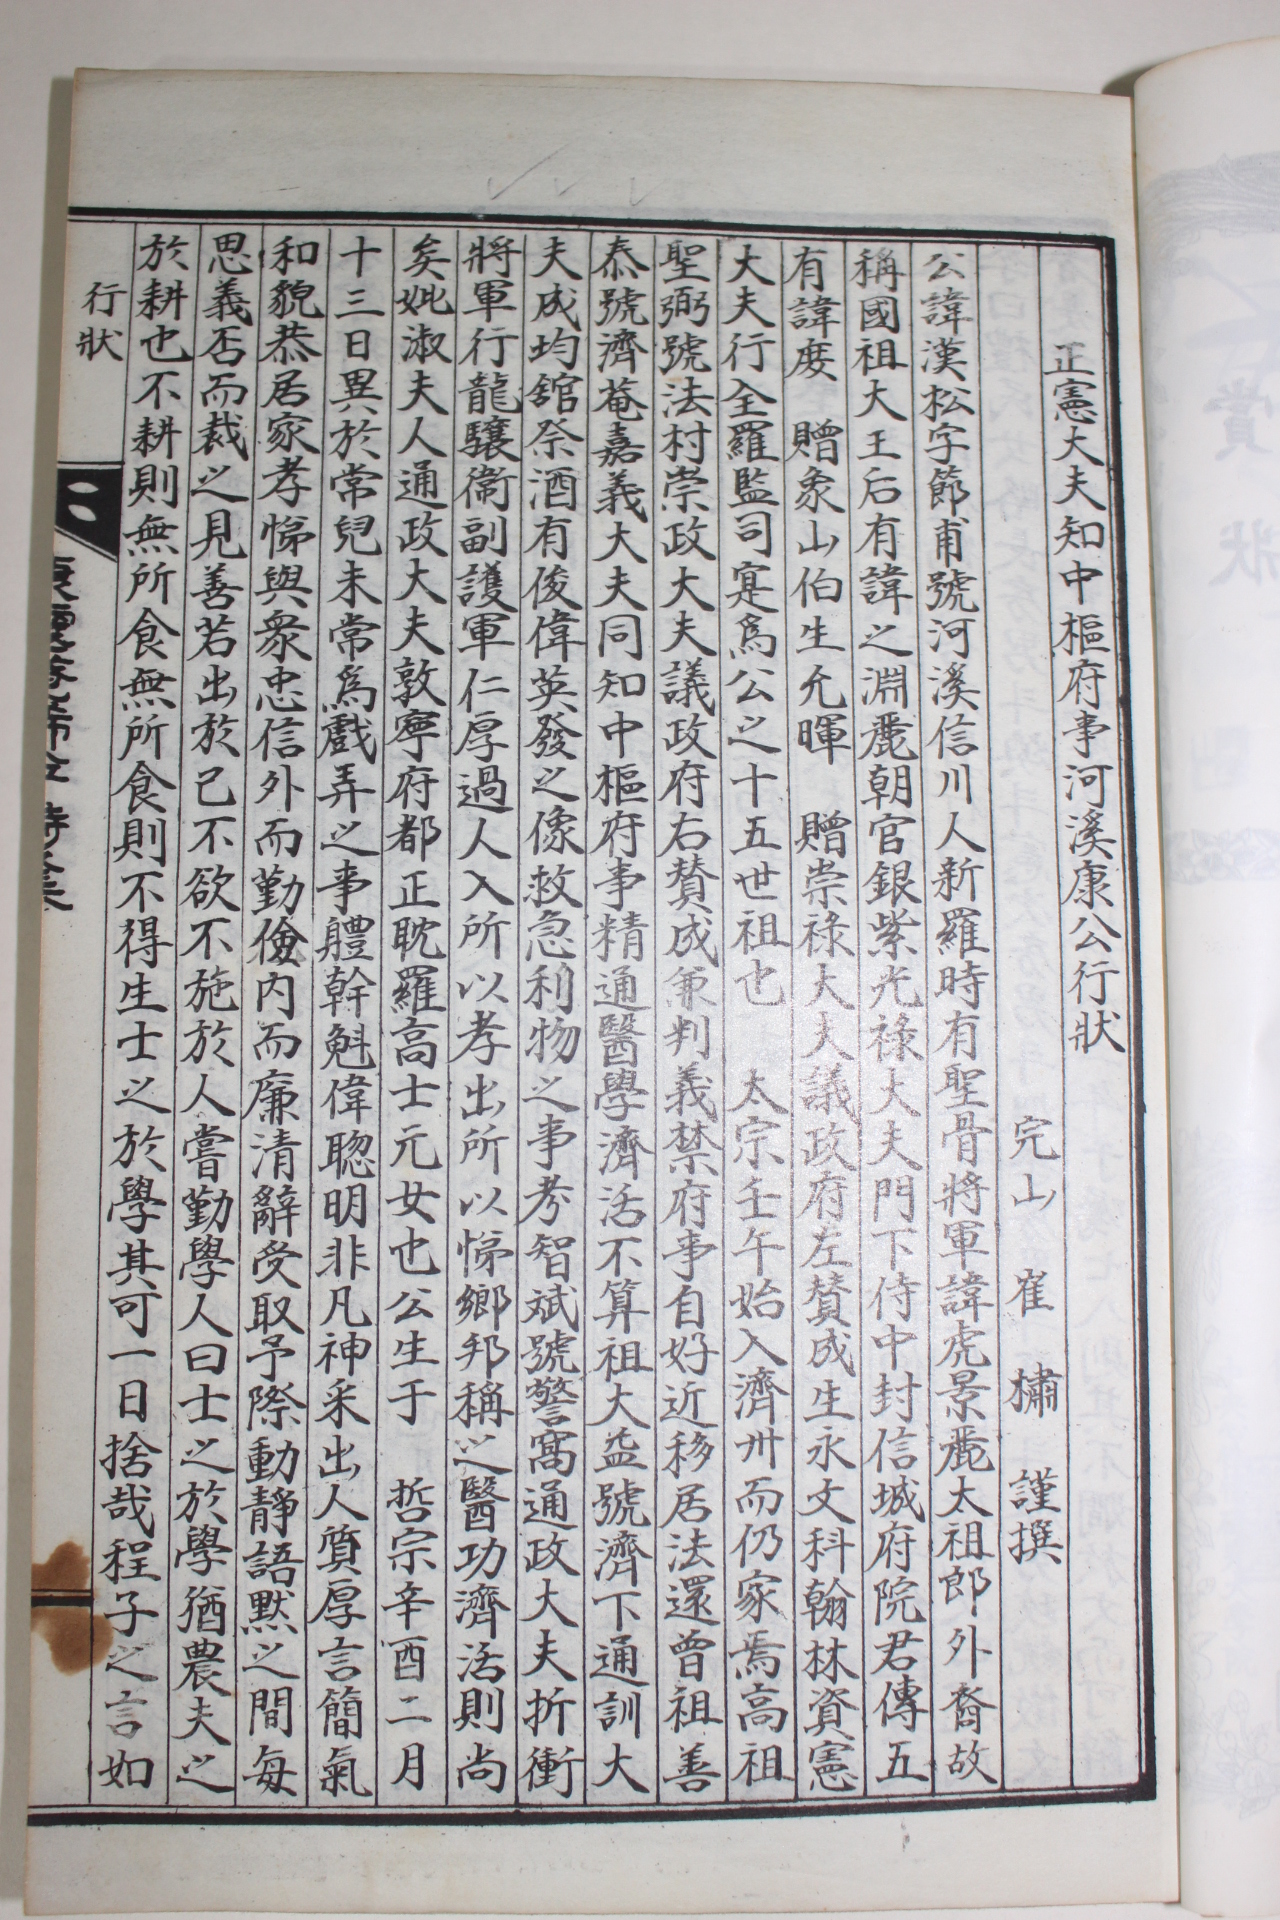 正憲大夫知中樞府事河溪康公行狀
完山 崔 橚 謹撰
公諱漢松字節甫號河溪信川人新羅時有聖骨將軍諱虎景麗太祖郎外裔故
稱國祖大王后有諱之淵麗朝官銀紫光祿大夫門下侍中封信城府院君傳五
有諱庋 贈象山伯生允暉 贈崇祿大夫議政府左賛成生永文科翰林資憲
大夫行全羅監司寔爲公之十五世祖也 太宗壬午始入濟州而仍家焉高祖
聖弼號法村崇政大夫議政府右賛成兼判義禁府事自好近移居法還曾祖善
泰號濟菴嘉義大夫同知中樞府事精通醫學濟活不算祖大益號濟下通訓大
夫成均舘祭酒有俊偉英發之像救急利物之事考智斌號警窩通政大夫折衝
將軍行龍驤衞副護軍仁厚過人入所以孝出所以悌鄉邦稱之醫功濟活則尚
矣妣淑夫人通政大夫敦寧府都正耽羅高士元女也公生于 哲宗辛酉二月
十三日異於常兒未常爲戱弄之事軆幹魁偉聦明非凡神采出人質厚言簡氣
和貌恭居家孝悌與衆忠信外而勤儉內而廉清辭受取予際動靜語默之間每
思義否而裁之見善若出於己不欲不施於人嘗勤學人曰士之於學猶農夫之
於耕也不耕則無所食無所食則不得生士之於學其可一日捨哉程子之言如
行狀